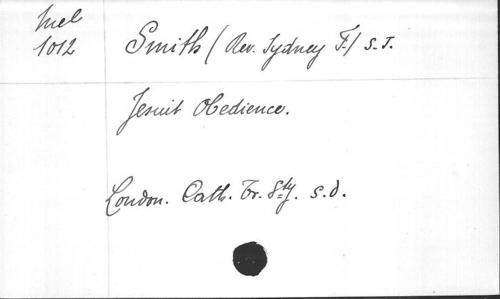 Mel
1012
Smith (Rev. Sydney F.) S.J.
Jesuit Obedience.
London. Cath. Tr. Sty. s.d.